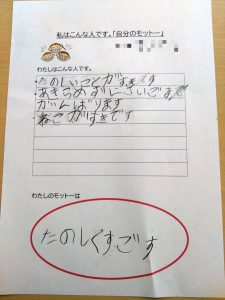 私はこんな人です。「自分のモットー」
わたしはこんな人です。
・たのしいことがすきです
あきらめずにさいごまで
がんばります
・ねこがすきです
わたしのモットーは
たのしくすごす